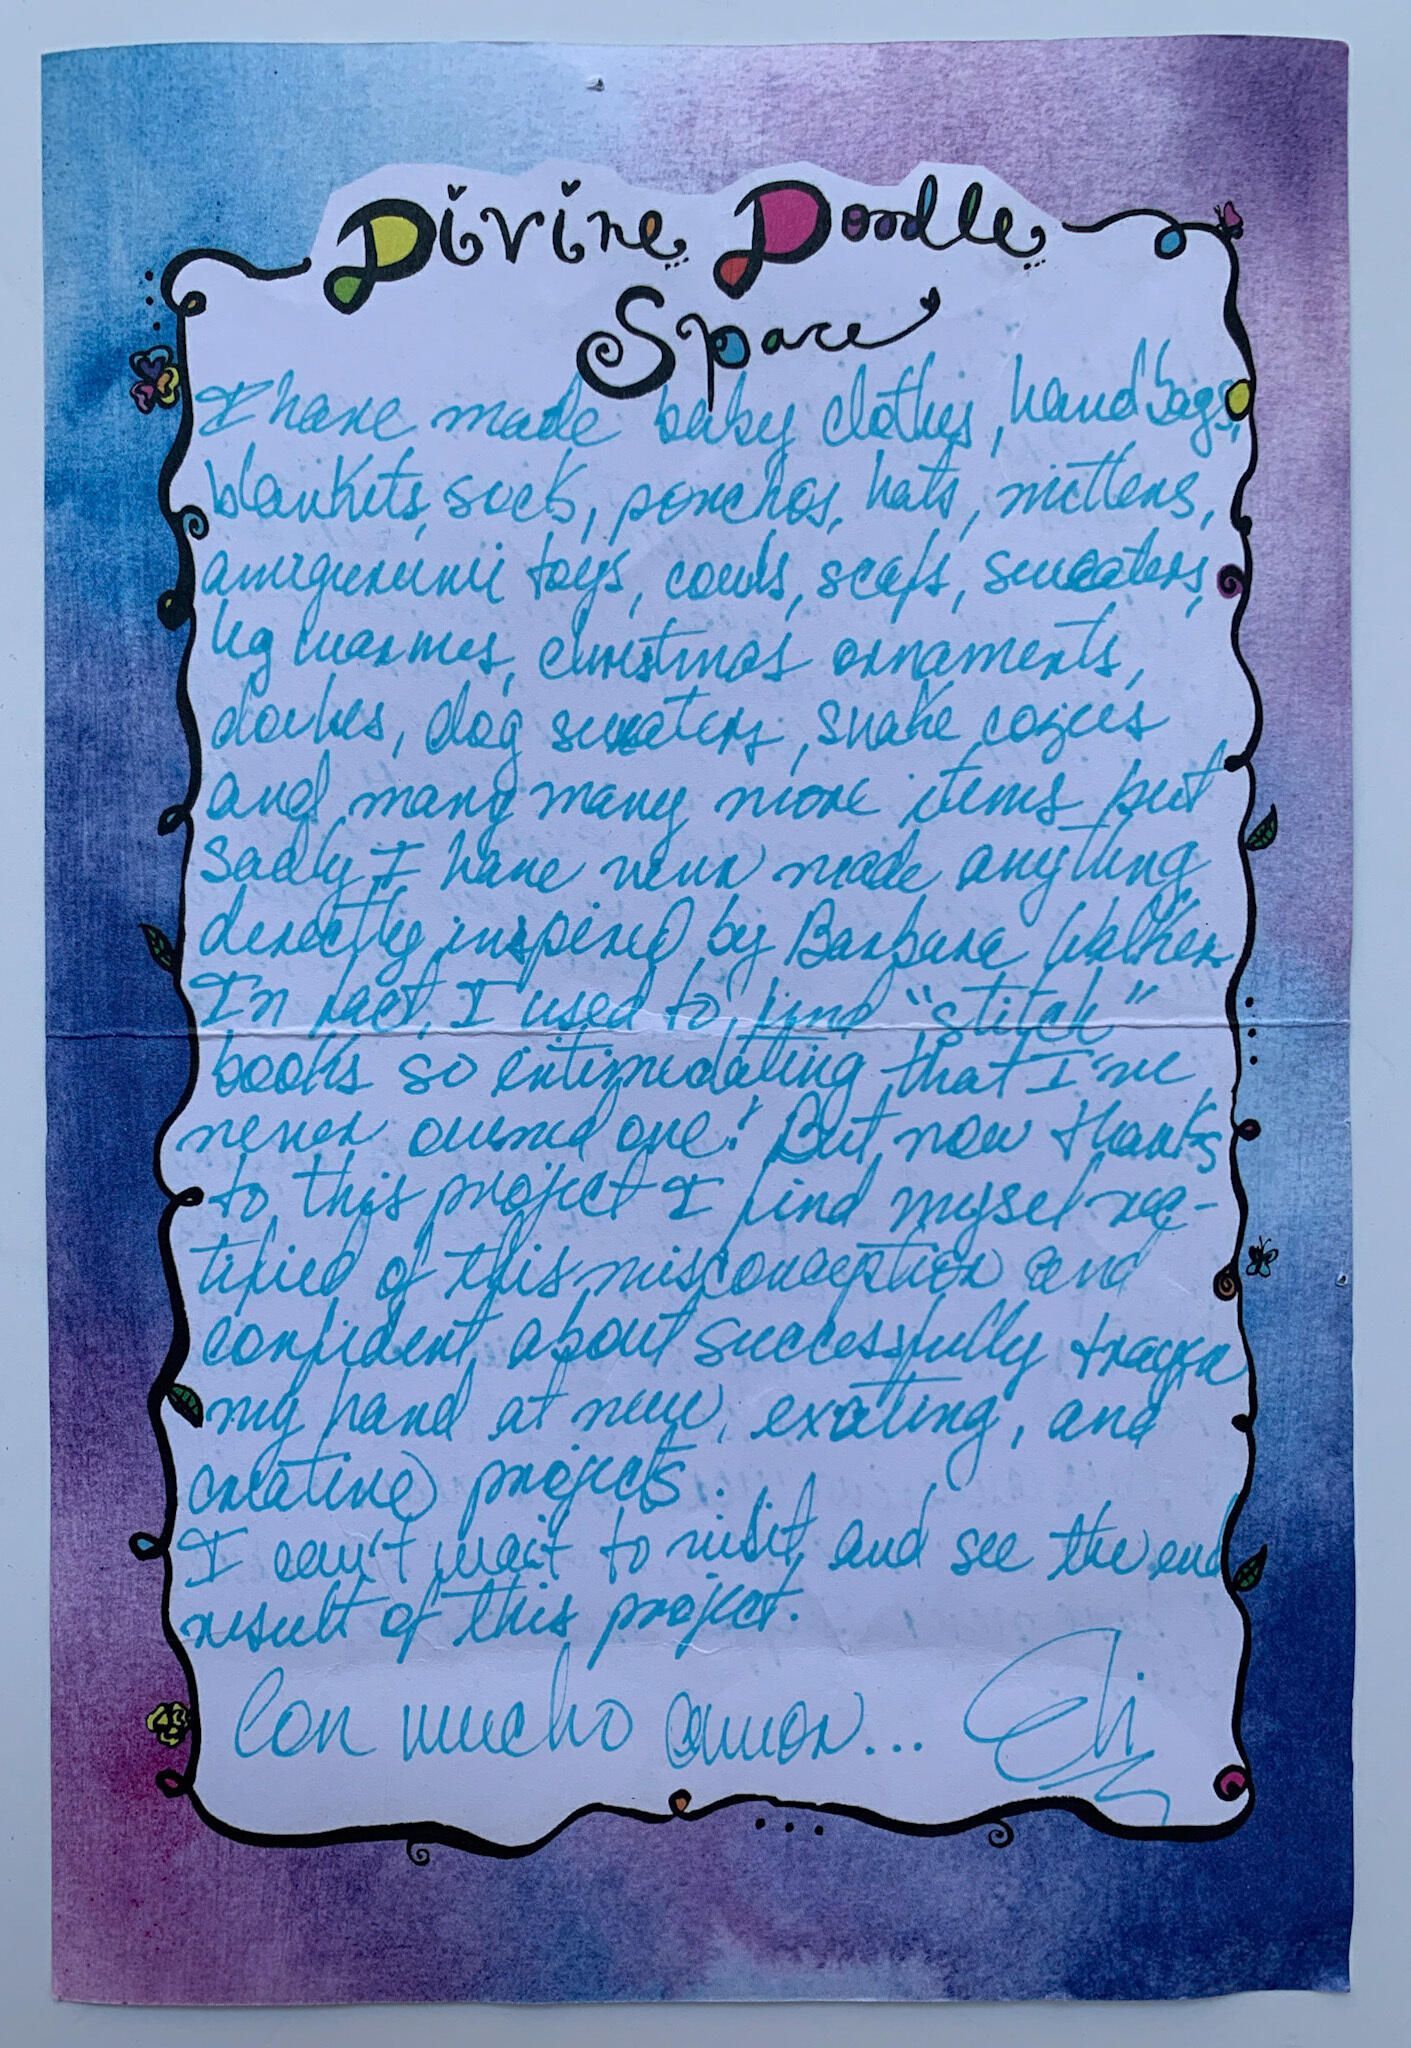 Divine Doodle
Space
I have made baby clothes, handbags,
blankets, socks, ponchos, hats, mittens,
amigurumi toys, cowls, scafs, sweaters,
leg warmes, christmas ornaments,
doilies, dog sweaters, snake cozies
and many many more items but
sadly I have never made anything
directly inspired by Barbara Walker.
In fact, I used to find "stitch"
books so entimedating that I've
never owned one! But now thanks
to this project I find mysel rec-
tified of this misconception and
confident about successfully trying
my hand at new, exciting, and
creative projects.
I can't wait to visit and see the end
result of this project.
Con mucho amor... Eli